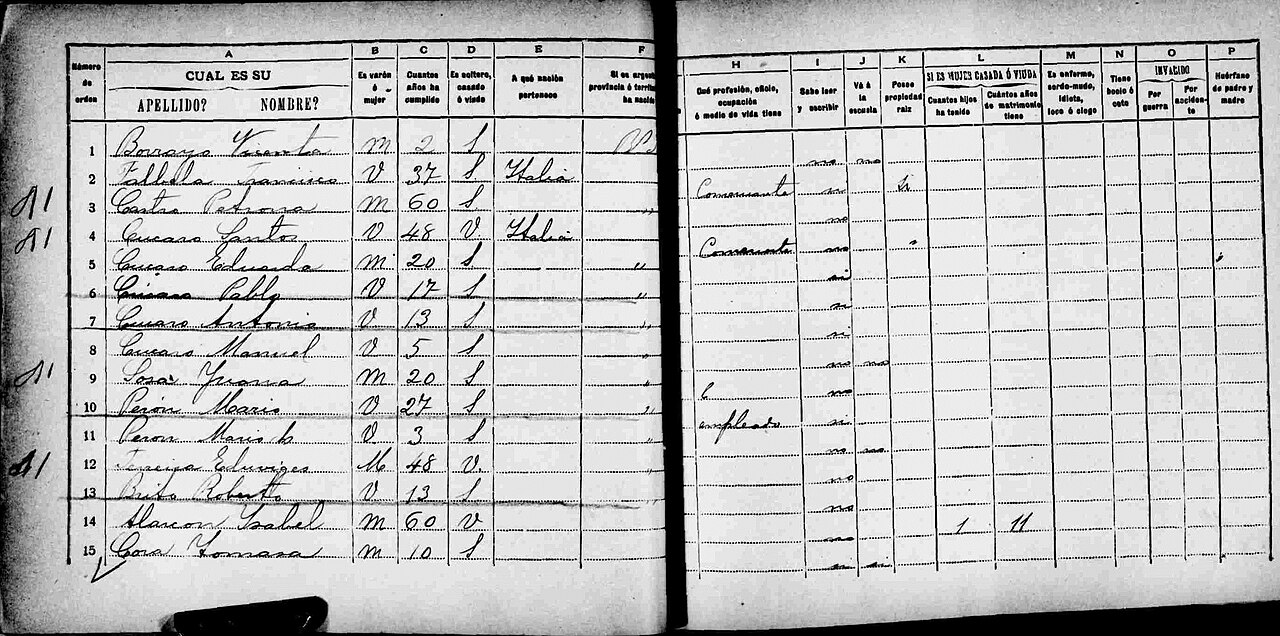 A B C D E F H I J K L M N O P
Número de orden CUAL ES SU APELLIDO? NOMBRE? Es varón ó mujer Cuantos años ha cumplido Es soltero, casado ó viudo A qué nación pertenece Si es argent provincia ó territo ha nacido Qué profesión, oficio, ocupación ó medio de vida tiene Sabe leer y escribir Vá á la escuela Posee propiedad raiz SI ES MUJER CASADA Ó VIUDA Cuantos hijos ha tenido Cuántos años de matrimonio tiene Es enfermo, sordo-mudo, idiota, loco ó ciego Tiene bocio ó coto INVALIDO Por guerra Por acciden- te Huérfano de padre y madre
1 Borrayo Vicenta M 2 S no no
2 Francisco V 37 S Italia Comerciante
3 Castro Petrona M 60 S " no
4 Cucaro Santos V 48 V. Italia Comerciante no "
5 Cucaro Eduarda M 20 S " si
6 Cucaro Pablo V 17 S "
7 Cucaro Antonio V 13 S "
8 Cucaro Manuel V 5 S " no no
9 Sosa Juana M 20 S " no
10 Perón Mario V 27 S " empleado
11 Perón Mario V 3 S " no no
12 Eduviges M 48 V. " no
13 Brito Roberto V 13 S " no
14 Alarcon Isabel M 60 V 1 11 no
15 Tomasa M 10 S